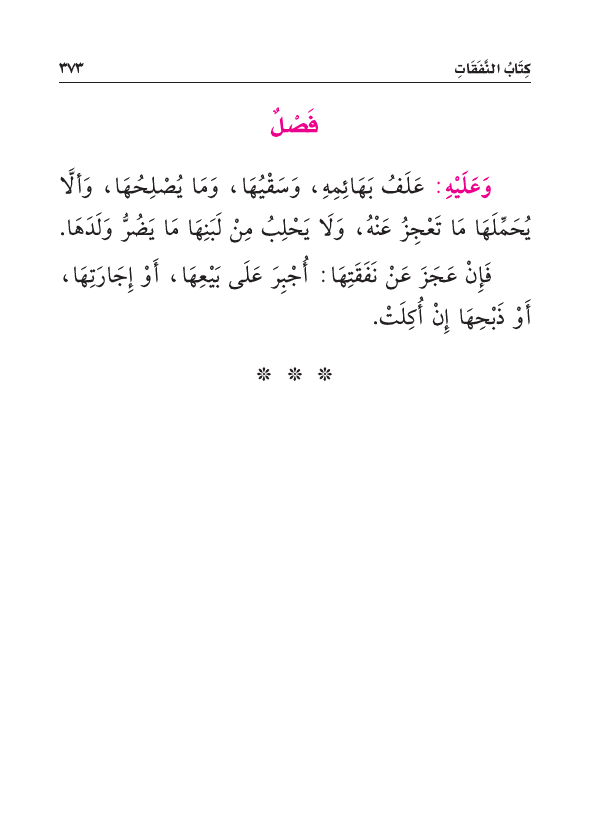 كِتَابُ النَّفَقَاتِ ٣٧٣
فَصْلٌ
وَعَلَيْهِ: عَلَفُ بَهَائِمِهِ، وَسَقْيُهَا، وَمَا يُصْلِحُهَا، وَألَّا
يُحَمِّلَهَا مَا تَعْجِزُ عَنْهُ، وَلَا يَحْلِبُ مِنْ لَبَنِهَا مَا يَضُرُّ وَلَدَهَا.
فَإِنْ عَجَزَ عَنْ نَفَقَتِهَا: أُجْبِرَ عَلَى بَيْعِهَا، أَوْ إِجَارَتِهَا،
أَوْ ذَبْحِهَا إِنْ أُكِلَتْ.
❊ ❊ ❊